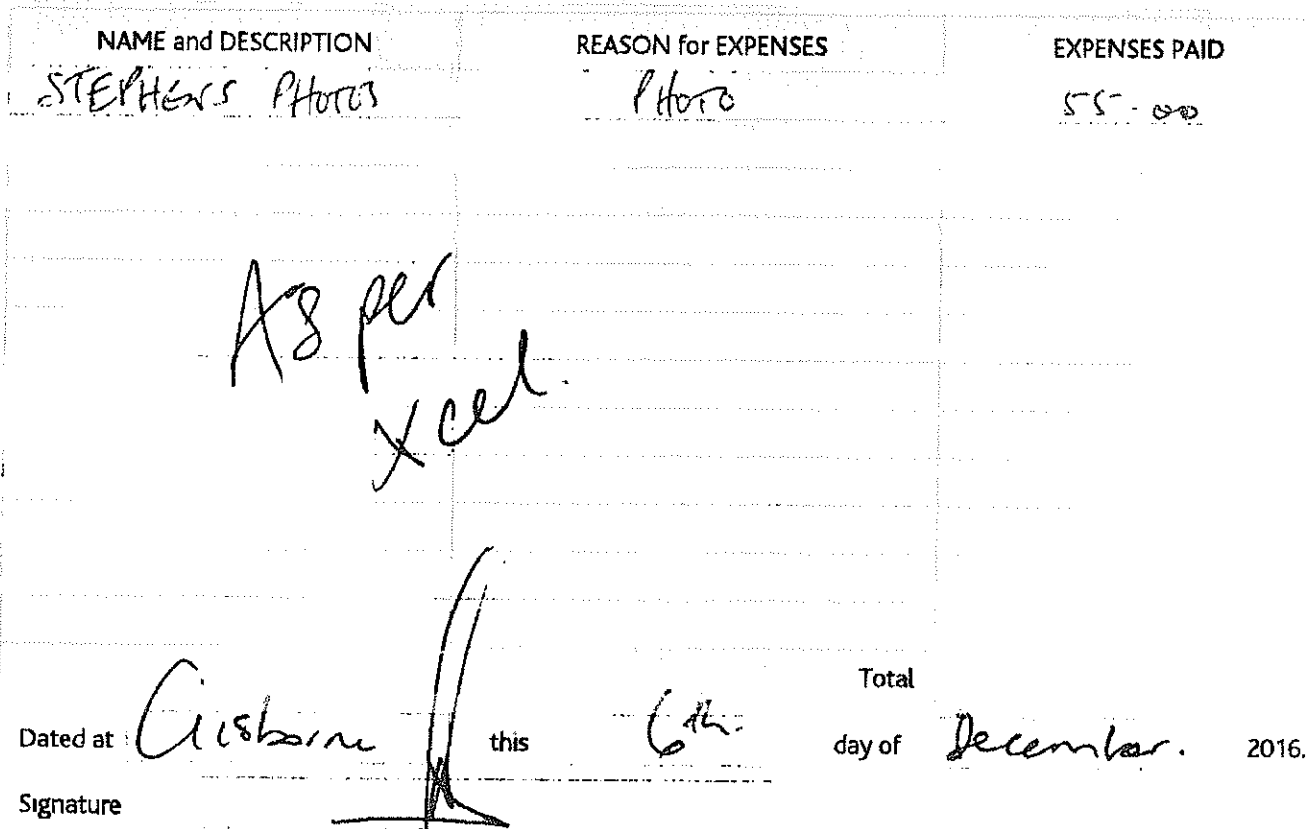 NAME and DESCRIPTION REASON for EXPENSES EXPENSES PAID
STEPHENS PHOTOS PHOTO 55-00
As per
xcel.
Total
Dated at Gisborne this 6th. day of December. 2016.
Signature